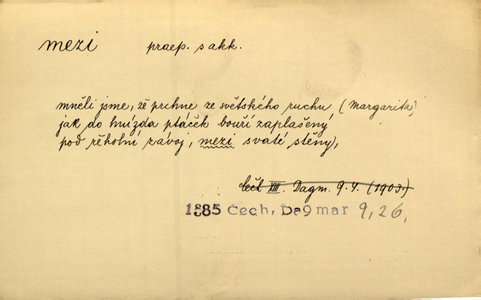 mezi praep. s akk.
mněli jsme, že prchne ze světského ruchu (Margarita)
jak do hnízda ptáček bouří zaplašený
pod řeholní závoj, mezi svaté stěny,
Čech XIII. Dagm. 9. 4. (1903.)
1885 Čech, Da9mar 9, 26,